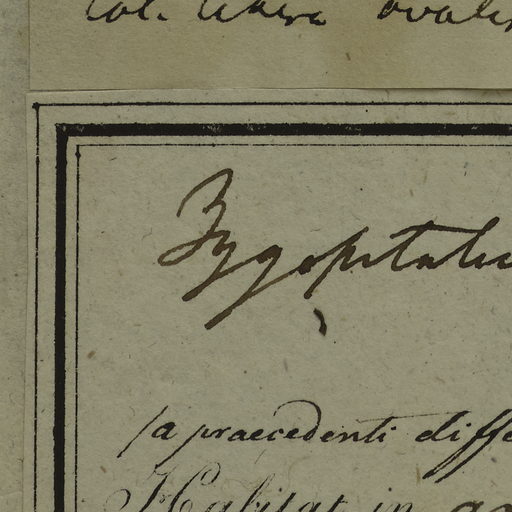 ovali
Zygopetalu
(a praecedenti diffe
Habitat in